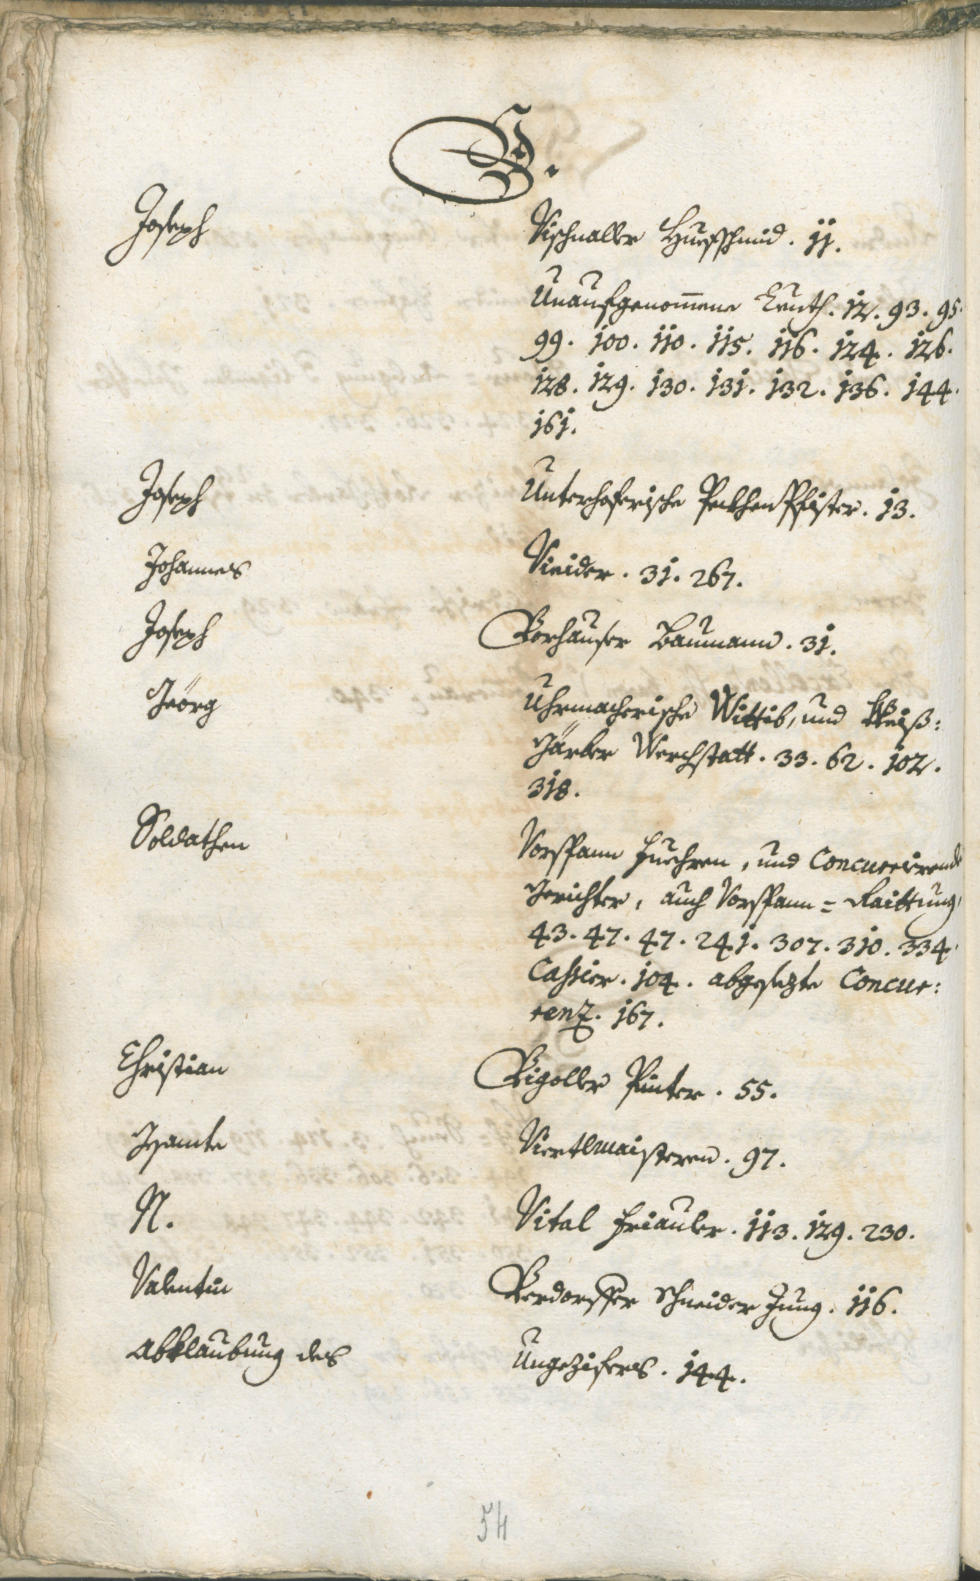 V.
Joseph Vischnaller Huefschmid. 11.
Unaufgenom̄ene Leuth. 12. 93. 95.
99. 100. 110. 115. 116. 124. 126.
128. 129. 130. 131. 132. 136. 144.
161.
Joseph Unterhoferische Pekhen Pfister. 13.
Johannes Vieider. 31. 267.
Joseph Vorhauser Baumann. 31.
Geörg Uhrmacherische Wittib, und Weiß:
Gärber Werchstatt. 33. 62. 102.
318.
Soldathen Vorspann Fuehren, und Concurrirende
Gerichter, auch Vorspann = Raittung,
43. 47. 47. 241. 307. 310. 334.
Cassier. 104. abgesezte Concur:
renz. 167.
Christian Vigoller Pinter. 55.
Gesamte Viertlmaisteren. 97.
N. Vital Friauler. 113. 129. 230.
Valentin Verdorffer Schneider Jung. 116.
Abklaubung des Ungezifers. 144.
54